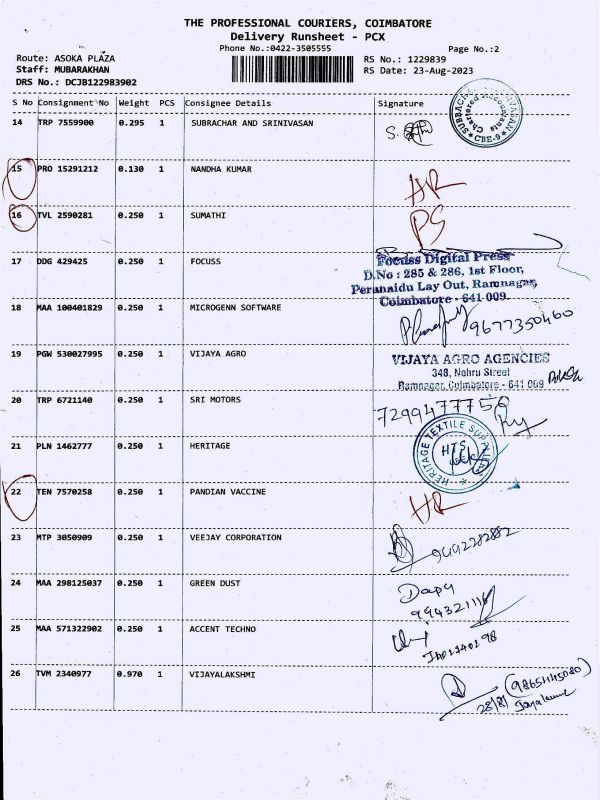 THE PROFESSIONAL COURIERS, COIMBATORE
Delivery Runsheet - PCX
Phone No.:0422-3505555
Page No.:2
Route: ASOKA PLAZA
Staff: MUBARAKHAN
DRS No.: DCJB122983902
RS No.: 1229839
RS Date: 23-Aug-2023
S No Consignment No Weight PCS Consignee Details Signature
14 TRP 7559900 0.295 1 SUBRACHAR AND SRINIVASAN
Chartered Accountants
CBE-9
15 PRO 15291212 0.130 1 NANDHA KUMAR HR
16 TVL 2590281 0.250 1 SUMATHI PS
17 DDG 429425 0.250 1 FOCUSS
Focuss Digital Press
D.No : 285 & 286, 1st Floor,
Perunaidu Lay Out, Ramnagar,
Coimbatore - 641 009.
18 MAA 100401829 0.250 1 MICROGENN SOFTWARE
9677350460
19 PGW 530027995 0.250 1 VIJAYA AGRO
VIJAYA AGRO AGENCIES
348, Nehru Street
Ramnagar, Coimbatore - 641 009
20 TRP 6721140 0.250 1 SRI MOTORS
7299477756
21 PLN 1462777 0.250 1 HERITAGE
HERITAGE TEXTILE
HTS
22 TEN 7570258 0.250 1 PANDIAN VACCINE HR
23 MTP 3050909 0.250 1 VEEJAY CORPORATION
24 MAA 298125037 0.250 1 GREEN DUST
25 MAA 571322902 0.250 1 ACCENT TECHNO
26 TVM 2340977 0.970 1 VIJAYALAKSHMI
28/8